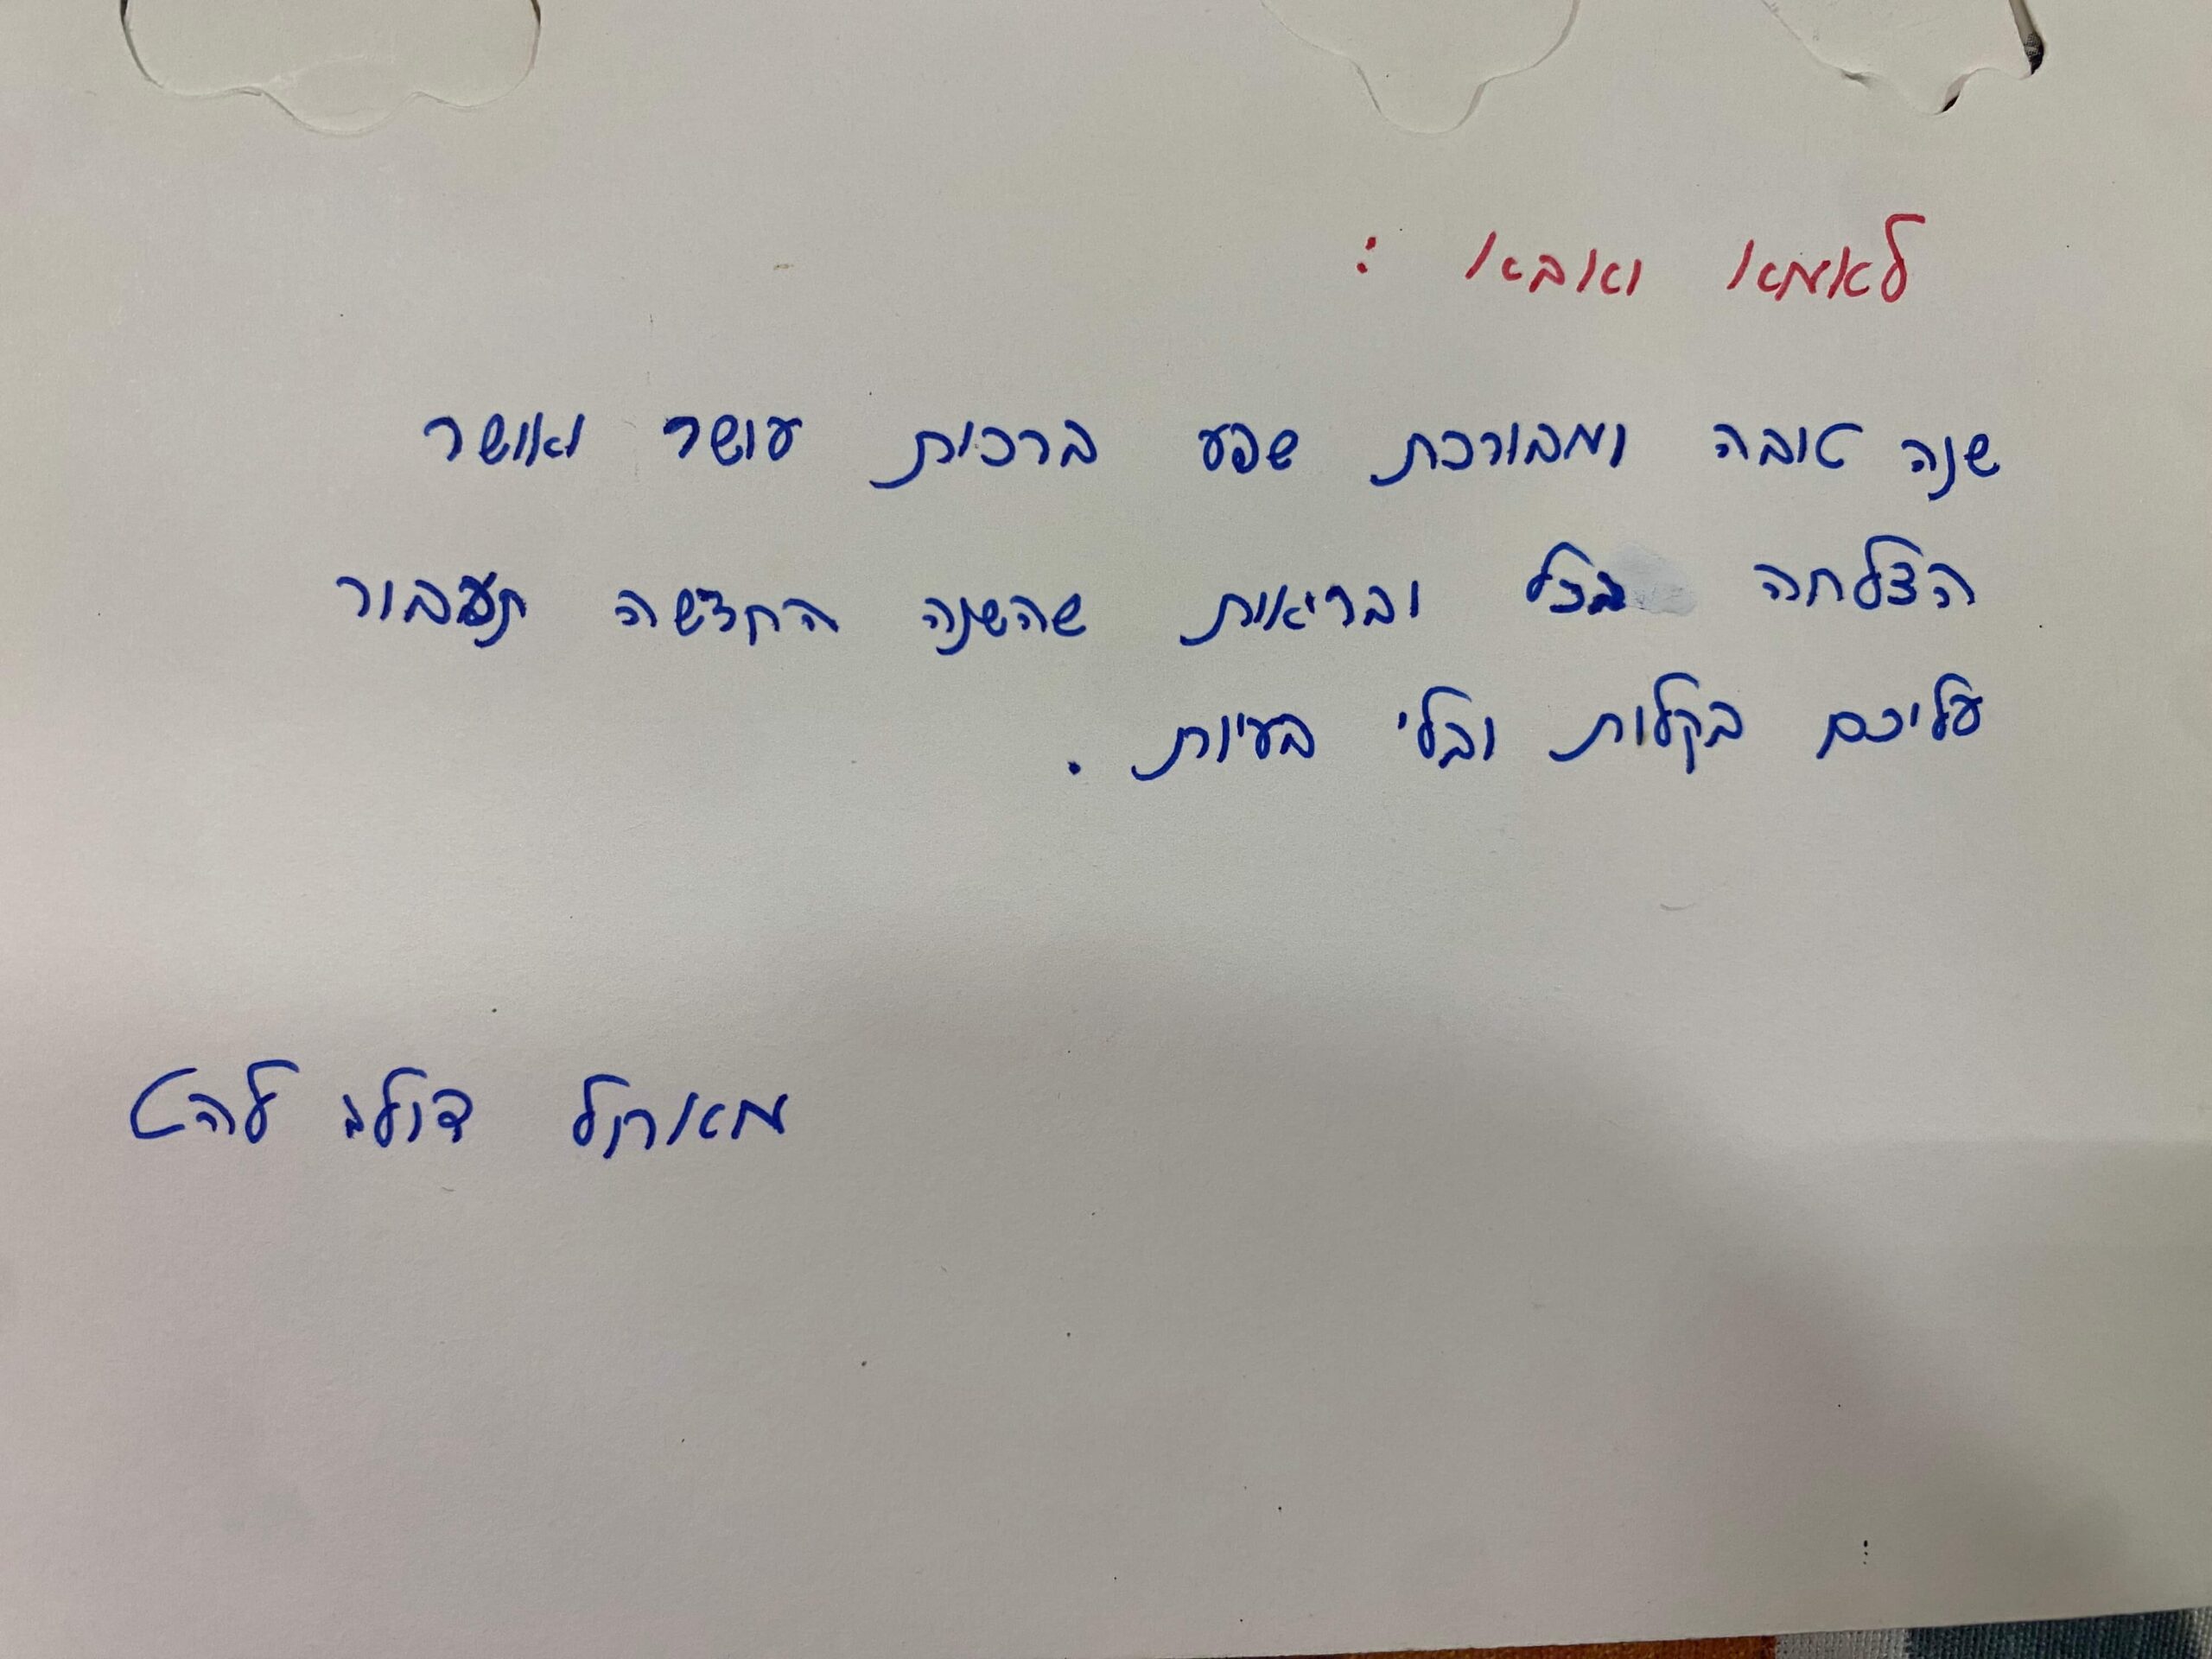 לאמא ואבא :
שנה טובה ומבורכת שפע ברכות עושר ואושר
הצלחה בכל ובריאות שהשנה החדשה תעבור
עליכם בקלות ובלי בעיות .
דולב להט